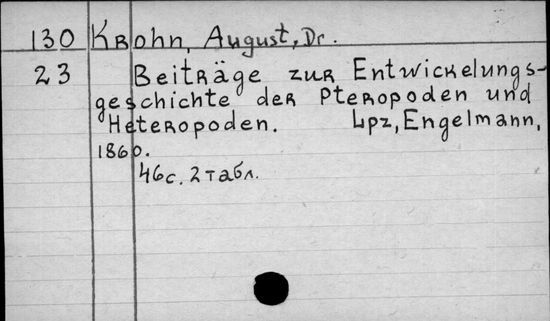 130 Krohn, August, Dr.
23 Beiträge zur Entwickelungs-
geschichte der Pteropoden und
Heteropoden. Lpz, Engelmann,
1860.
46с. 2 табл.